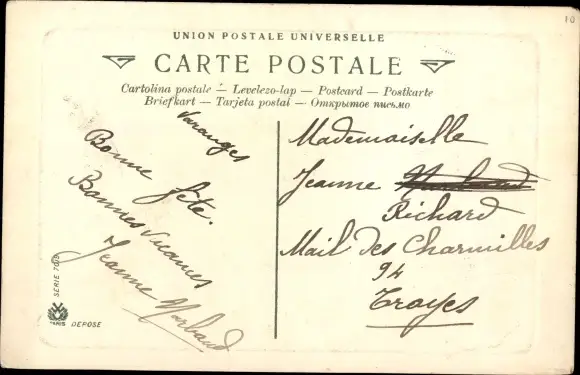 10
UNION POSTALE UNIVERSELLE
CARTE POSTALE
Cartolina postale — Levelezo-lap — Postcard — Postkarte
Briefkart — Tarjeta postal — Открытое письмо
Varanges
Bonne fête.
Bonnes Vacances
Jeanne Narbaud
Mademoiselle
Jeanne
Richard
Mail des Charmilles
94
Troyes
SERIE
PARIS
DEPOSE